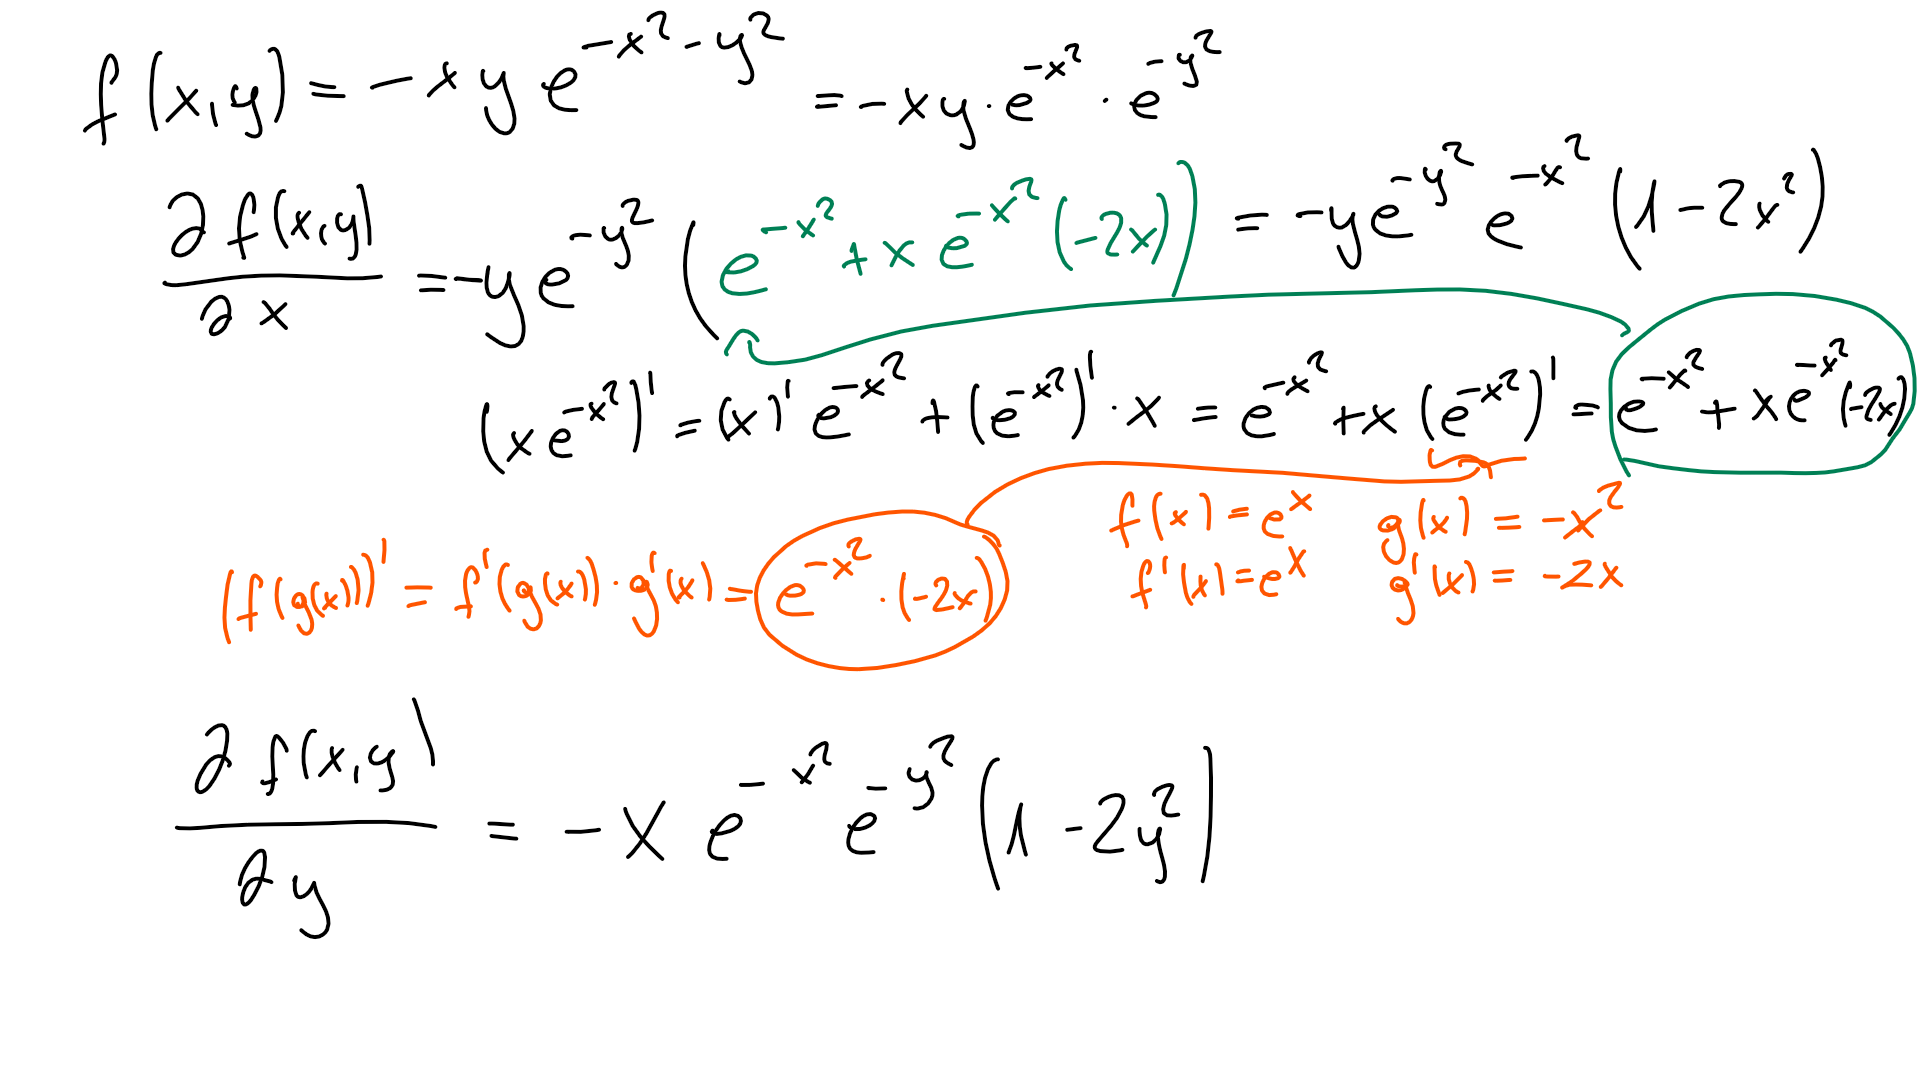 f(x,y) = -xy e^{-x^2-y^2} = -xy · e^{-x^2} · e^{-y^2}
∂f(x,y)/∂x = -y e^{-y^2} (e^{-x^2} + x e^{-x^2} (-2x)) = -y e^{-y^2} e^{-x^2} (1 - 2x^2)
(x e^{-x^2})' = (x)' e^{-x^2} + (e^{-x^2})' · x = e^{-x^2} + x (e^{-x^2})' = e^{-x^2} + x e^{-x^2} (-2x)
f(x) = e^x g(x) = -x^2
(f(g(x)))' = f'(g(x)) · g'(x) = e^{-x^2} · (-2x) f'(x) = e^x g'(x) = -2x
∂f(x,y)/∂y = -x e^{-x^2} e^{-y^2} (1 - 2y^2)